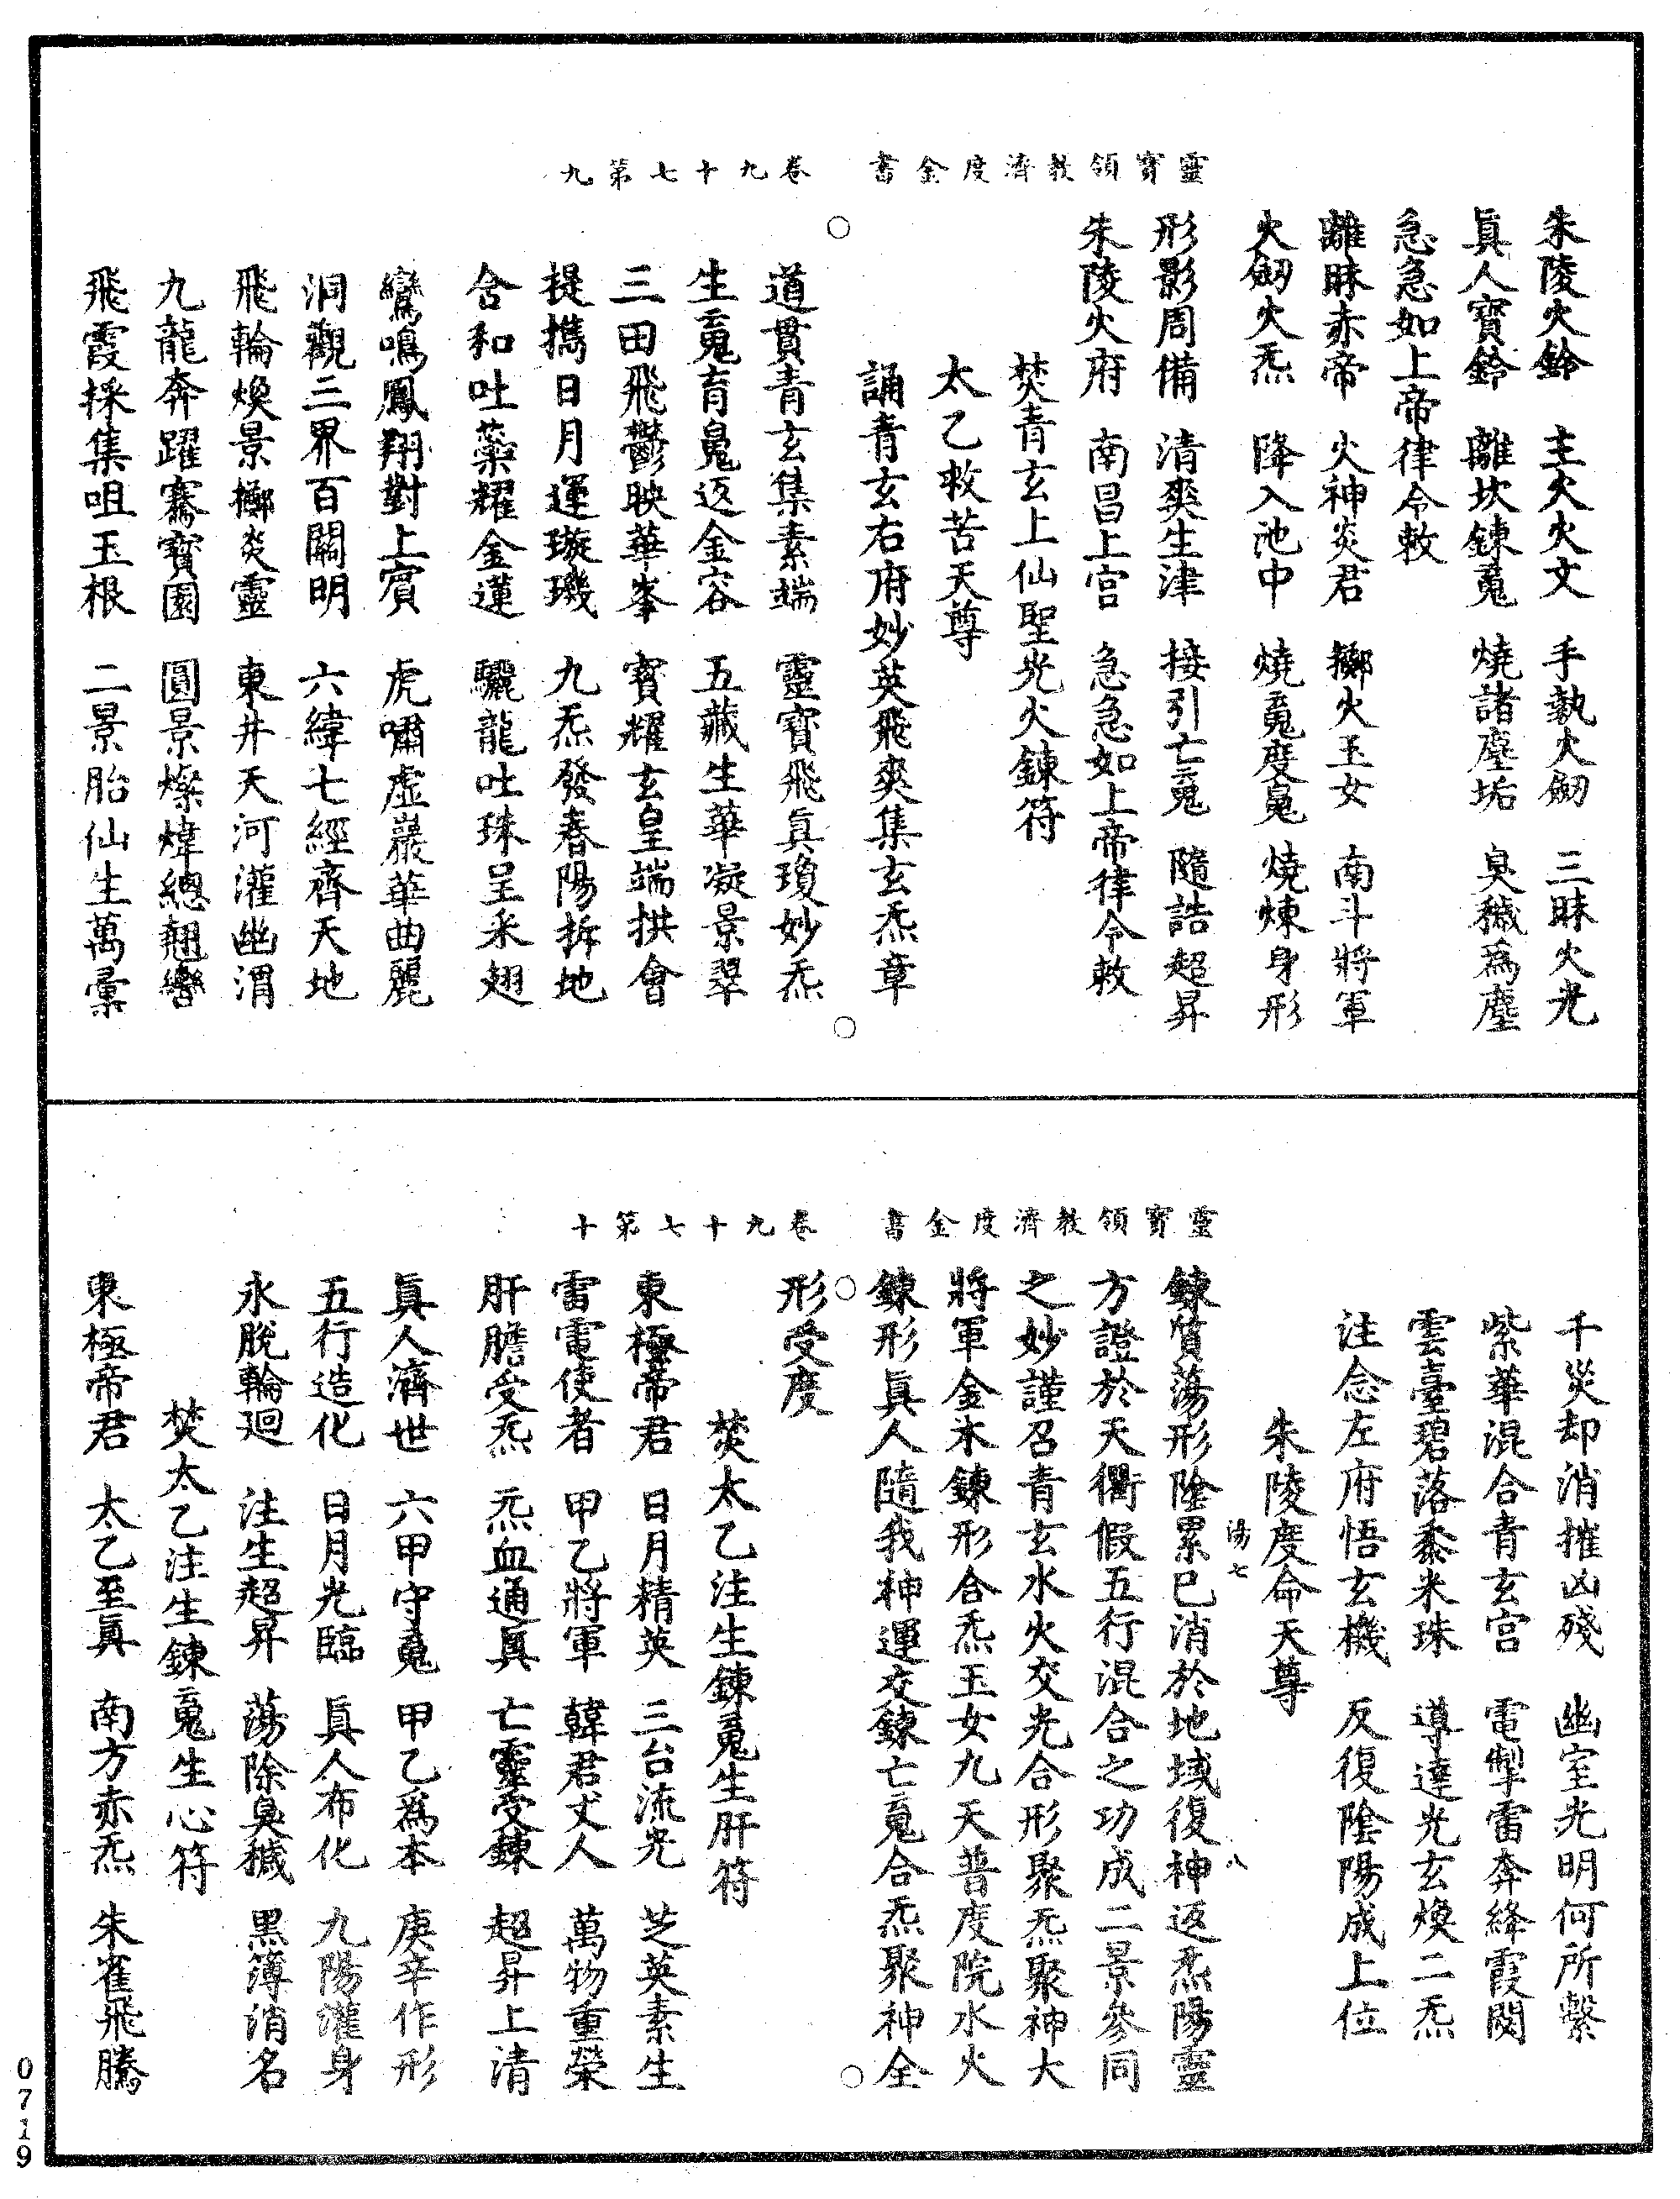 靈寶領教濟度金書　卷九十七第九
朱陵火鈴　主火火文　手執火劒　三昧火光
眞人寶鈴　離坎鍊䰟　燒諸塵垢　臭穢爲塵
急急如上帝律令敕
離昧赤帝　火神炎君　擲火玉女　南斗將軍
火劒火炁　降入池中　燒䰟度䰠　燒煉身形
形影周備　清爽生津　接引亡䰟　隨誥超昇
朱陵火府　南昌上宫　急急如上帝律令敕
焚青玄上仙聖光火鍊符
太乙救苦天尊
誦青玄右府妙英飛爽集玄炁章
道貫青玄集素端　靈寶飛眞瓊妙炁
生䰟育䰠返金容　五藏生華凝景翠
三田飛鬱映華峯　寶耀玄皇端拱會
提擕日月運璇璣　九炁發春陽拆地
含和吐藥耀金蓮　驪龍吐珠呈釆翅
鸞鳴鳳翔對上賓　虎嘯虚巖華曲麗
洞觀三界百關明　六緯七經齊天地
飛輪煥景擲炎靈　東井天河灌幽渭
九龍奔躍騫寶園　圓景燦煒總翹轡
飛霞採集咀玉根　二景胎仙生萬彙
靈寶領教濟度金書　卷九十七第十
千災却消摧凶殘　幽室光明何所繫
紫華混合青玄宫　電掣雷奔絳霞閔
雲臺碧落黍米珠　導達光玄煥二炁
注念左府悟玄機　反復陰陽成上位
朱陵度命天尊
湯七　八
鍊質蕩形陰累已消於地域復神返炁陽靈
方證於天衢假五行混合之功成二景參同
之妙謹召青玄水火交光合形聚炁聚神大
將軍金木鍊形合炁玉女九天普度院水火
鍊形眞人隨我神運交鍊亡䰟合炁聚神全
形受度
焚太乙注生鍊䰟生肝符
東極帝君　日月精英　三台流光　芝英素生
雷電使者　甲乙將軍　韓君丈人　萬物重榮
肝膽受炁　炁血通眞　亡靈受鍊　超昇上清
眞人濟世　六甲守䰟　甲乙爲本　庚辛作形
五行造化　日月光臨　眞人布化　九陽灌身
永脫輪迴　注生超昇　蕩除臭穢　黑簿消名
焚太乙注生鍊䰟生心符
東極帝君　太乙至眞　南方赤炁　朱雀飛騰
0719